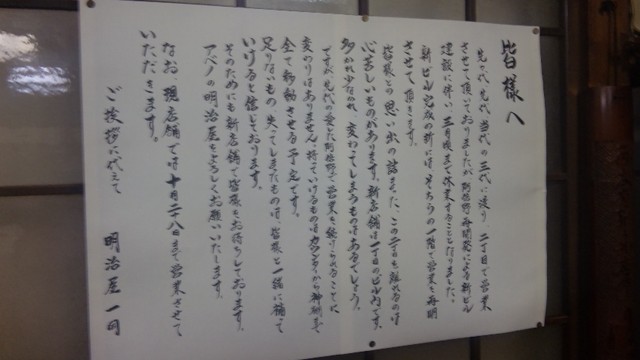 皆様へ
先々代、先代、当代の三代に渡り、二丁目で営業
させて頂いておりましたが、阿倍野再開発による新ビル
建設に伴い、三月頃まで休業することとなりました。
新ビル完成の折には、そちらの一階で営業を再開
させて頂きます。
皆様との思い出の詰まった、この二丁目を離れるのは
心苦しいものがあります。新店舗は一丁目のビル内です。
多かれ少なかれ、変わってしまうものはあるでしょう。
ですが、先代の愛した阿倍野で営業を続けられることに
変わりはありません。持っていけるものはカウンターから神棚まで
全て移動させる予定です。
足りないもの、失ってしまたものは、皆様と一緒に補って
いけると信じております。
そのためにも新店舗で皆様をお待ちしております。
アベノの明治屋をよろしくお願いいたします。
なお、現店舗では十月二十八日まで営業させて
いただきます。
ご挨拶に代えて
明治屋一同